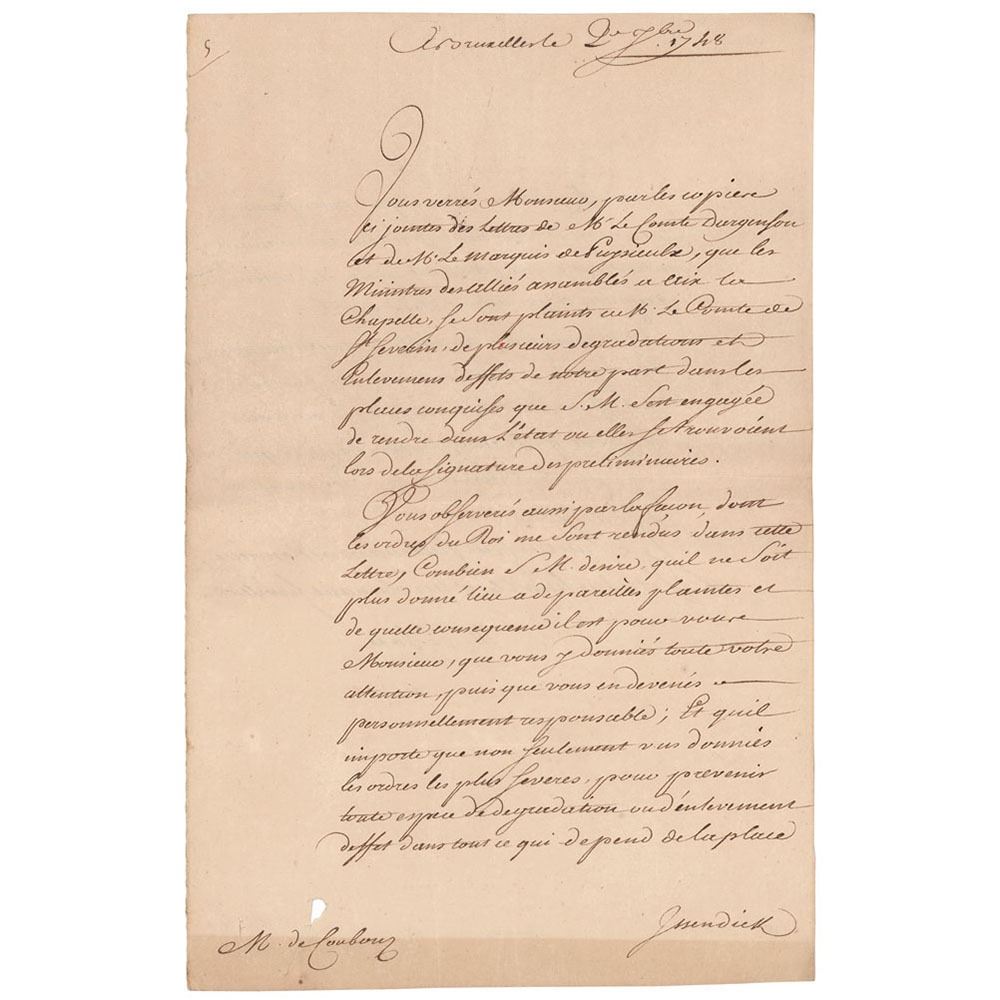 5
A Bruxelles le 2e 7bre 1748
Vous verrés Monsieur, par les copies
ci jointes des Lettres de Mr. Le Comte Dargenson
et de Mr. Le Marquis de Puysieulx, que les
Ministres des alliés assamblés a Aix la
Chapelle, se sont plaints a M. Le Comte de
St. Severin, de plusieurs degradations et
Enlevemens deffets de notre part dans les
places conquises que S. M. s'est engagée
de rendre dans L'état ou elles se trouvoient
lors de la signature des preliminaires.
Vous observerés aussi par la facon, dont
les ordres du Roi me sont rendus dans cette
Lettre, Combien S. M. desire, quil ne soit
plus donné lieu a de pareilles plaintes et
de quelle consequence il est pour vous
Monsieur, que vous y donniés toute votre
attention, puis que vous en devenés
personnellement responsable; Et quil
importe que non seulement vous donniés
les ordres les plus severes, pour prevenir
toute espece de degradation ou d'enlevement
deffet dans tout ce qui depend de la place
M. de Coubouz